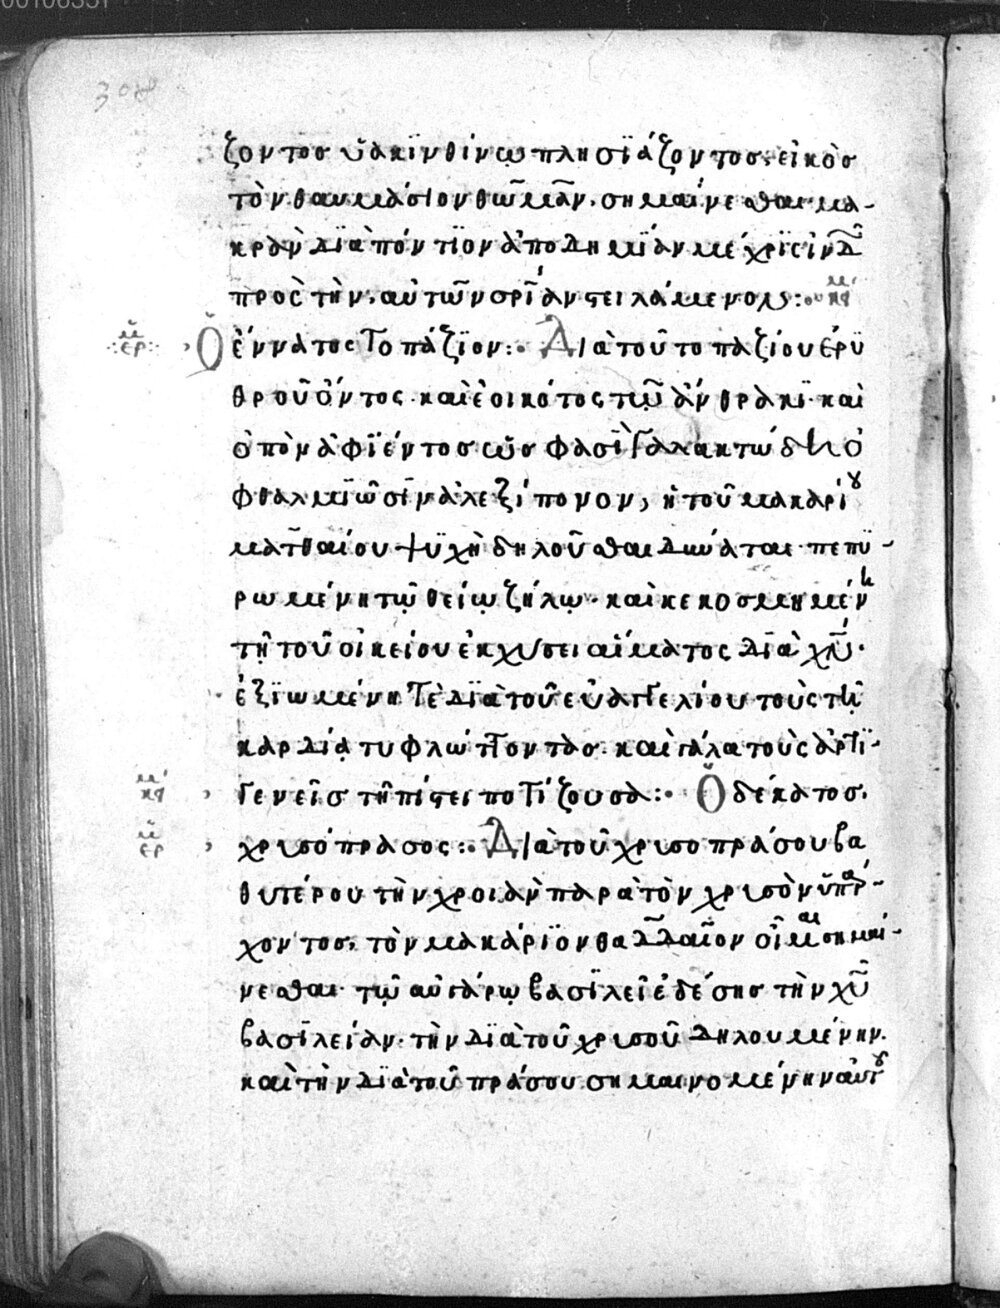 308
ζοντοσ ϋακϊνθίνω πλησϊάζοντοσ· εἰκὸσ
τὸν θαυμάσιον θωμᾶν· σημαίνεσθαι· μα-
κρὰν διαπόντϊον ἀποδημΐαν μέχρϊς ἰνδ
πρὸς τὴν αὐτῶν σρΐαν στειλάμενον:
κφ
Ὁ ἔννατος Τοπάζϊον: Διὰ τοῦ τοπαζίου ἐρϋ
ἑρ
θροῦ ὄντος· καὶ ἐοικότος τῶ ἄνθρακϊ· καὶ
ὀπὸν ἀφϊέντοσ ὥσ φασϊ γαλακτώδη ὀ
φθαλμϊῶσϊν ἀλεξίπονον, ἡ τοῦ μακαρί
ματθαίου ψϋχὴ δηλοῦσθαι δυναται· πεπϋ-
ρωμένη τῶ θείω ζήλω· καὶ κεκοσμημένη
τῆ τοῦ οἰκείου ἐκχύσει αἵματος διὰ χν·
ἐξϊωμένη τὲ διὰ τοῦ εὐαγγελίου τοὺς τῆ
καρδία τυφλώττοντασ· καὶ γάλα τοὺς ἀρτϊ-
γενεῖσ τῆ πίστει ποτίζουσα: Ὁ δέκατοσ·
κφ
χρυσόπρασος: Διὰ τοῦ χρυσοπράσου βα
ἑρ
θυτέρου τὴν χροιὰν παρὰ τὸν χρυσὸν ὑπάρ-
χοντοσ· τὸν μακάρϊον θαδδαῖον οἶμαι σημαί-
νεσθαι· τῶ αὐγάρω βασιλεῖ ἐδέσησ τὴν χυ
βασιλείαν· τὴν διὰ τοῦ χρυσοῦ δηλουμένην·
καὶ τὴν διὰ τοῦ πράσου σημαινομένην αὐτου